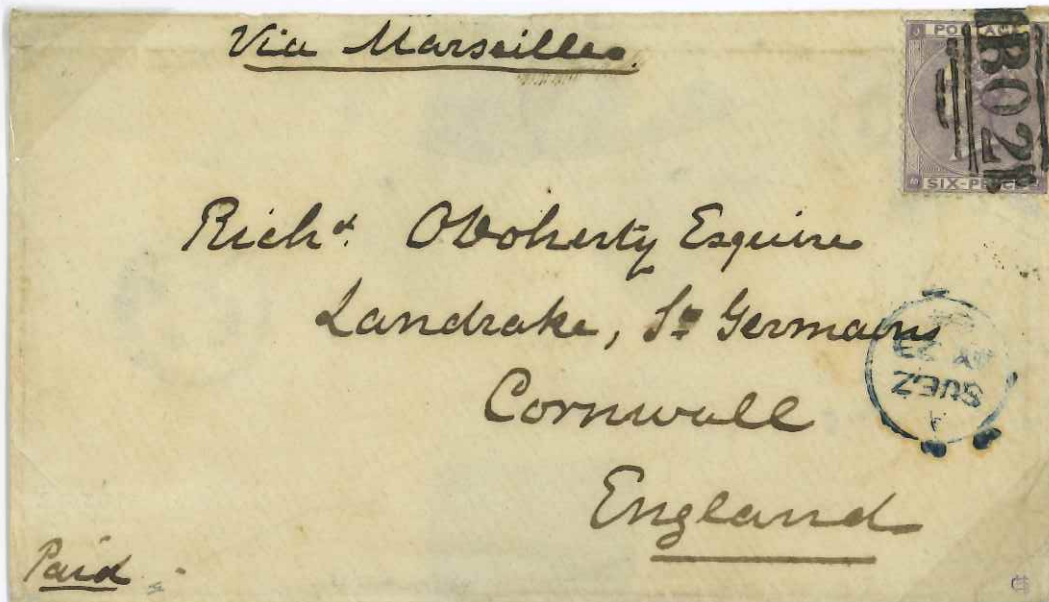 Via Marseilles
POSTAGE
B02
SIX-PENCE
Richd. ODoherty Esquire
Landrake, St Germains
Cornwall
England
A
SUEZ
23
Paid